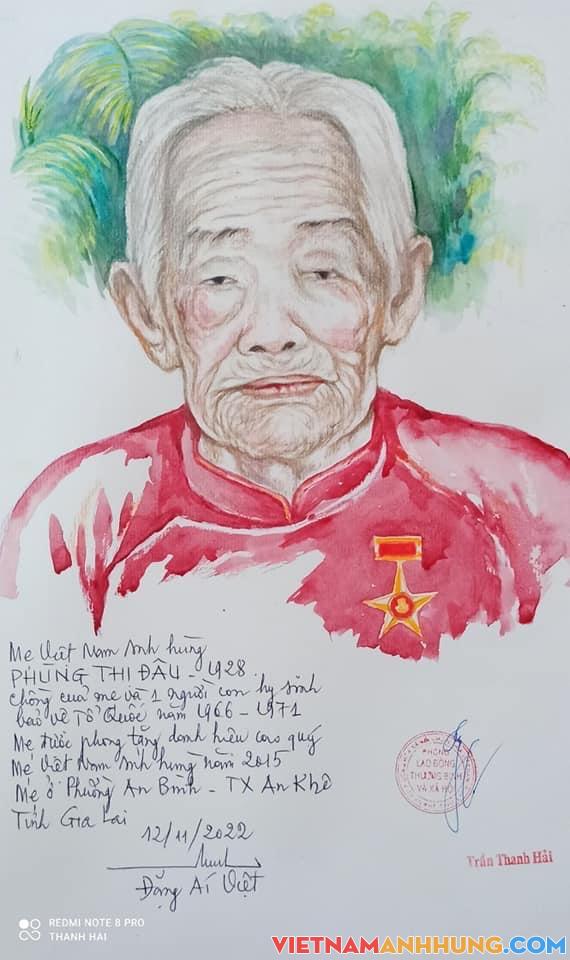 Mẹ Việt Nam Anh hùng
PHÙNG THỊ ĐÂU - 1928
chồng của mẹ và 1 người con hy sinh
bảo vệ Tổ Quốc năm 1966 - 1971
Mẹ được phong tặng danh hiệu cao quý
Mẹ Việt Nam Anh hùng năm 2015
Mẹ ở Phường An Bình - TX An Khê
Tỉnh Gia Lai
12/11/2022
Đặng Ái Việt
PHÒNG
LAO ĐỘNG
THƯƠNG BINH
VÀ XÃ HỘI
Trần Thanh Hải
REDMI NOTE 8 PRO
THANH HAI
VIETNAMANHHUNG.COM